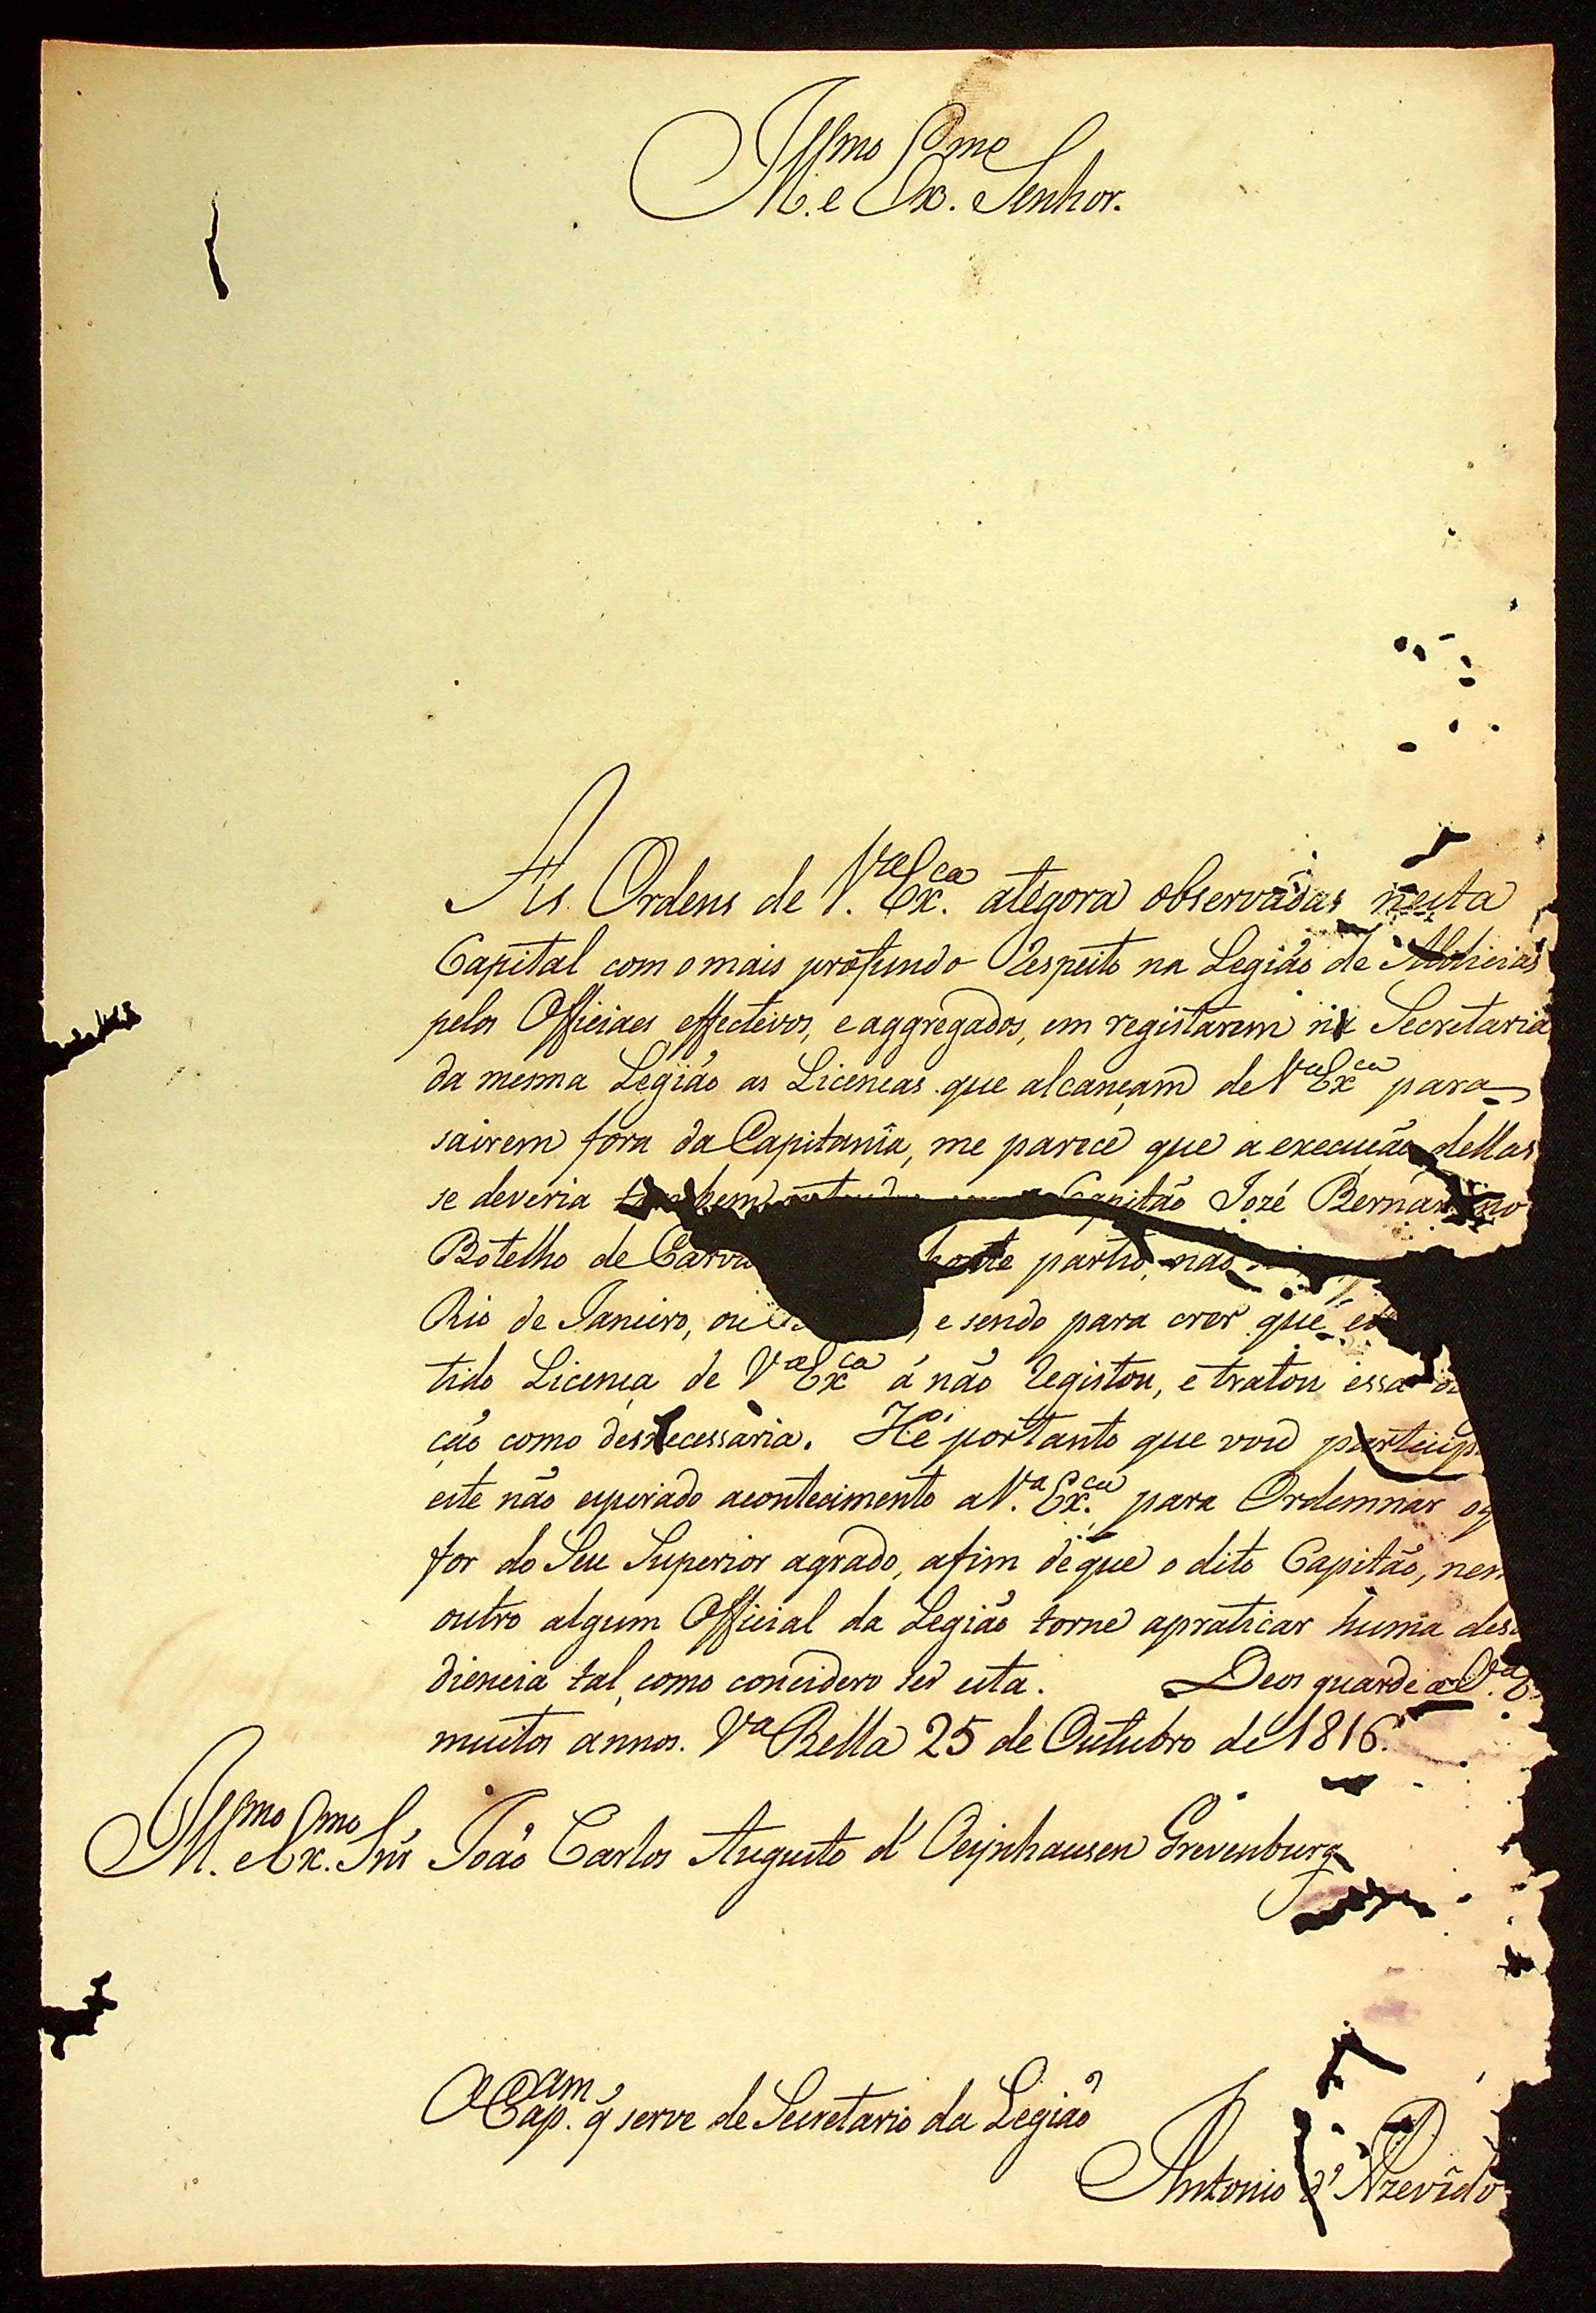 Ill.mo e Ex.mo Senhor.
As Ordens de V.a Ex.ca atégora observadas nesta
Capital com o mais profundo Respeito na Legião de Milicias
pelos Officiaes effectivos, e aggregados, em registarem na Secretaria
da mesma Legião as Licencas que alcançam de V.a Ex.ca para
sairem fora da Capitania, me parece que a execução dellas
se deveria tambem Capitão Jozé Bernardino
Botelho de Carva partio, não
Rio de Janeiro, ou e sendo para crer que
tido Licença de V.a Ex.ca á não registou, e tratou essa
ção como desnecessaria. Hé portanto que vou particip
este não esperado acontecimento a V.a Ex.ca para Ordemnar oq
for do Seu Superior agrado, afim de que o dito Capitão, nem
outro algum Official da Legião torne apraticar huma des
diencia tal, como concidero ser esta. Deos guarde a V.a E
muitos annos. V.a Bella 25 de Outubro de 1816.
Ill.mo e Ex.mo Snr João Carlos Augusto d'Oeynhausen Grevenburg
O Cap.am q̃ serve de Secretario da Legião
Antonio d'Azevêdo